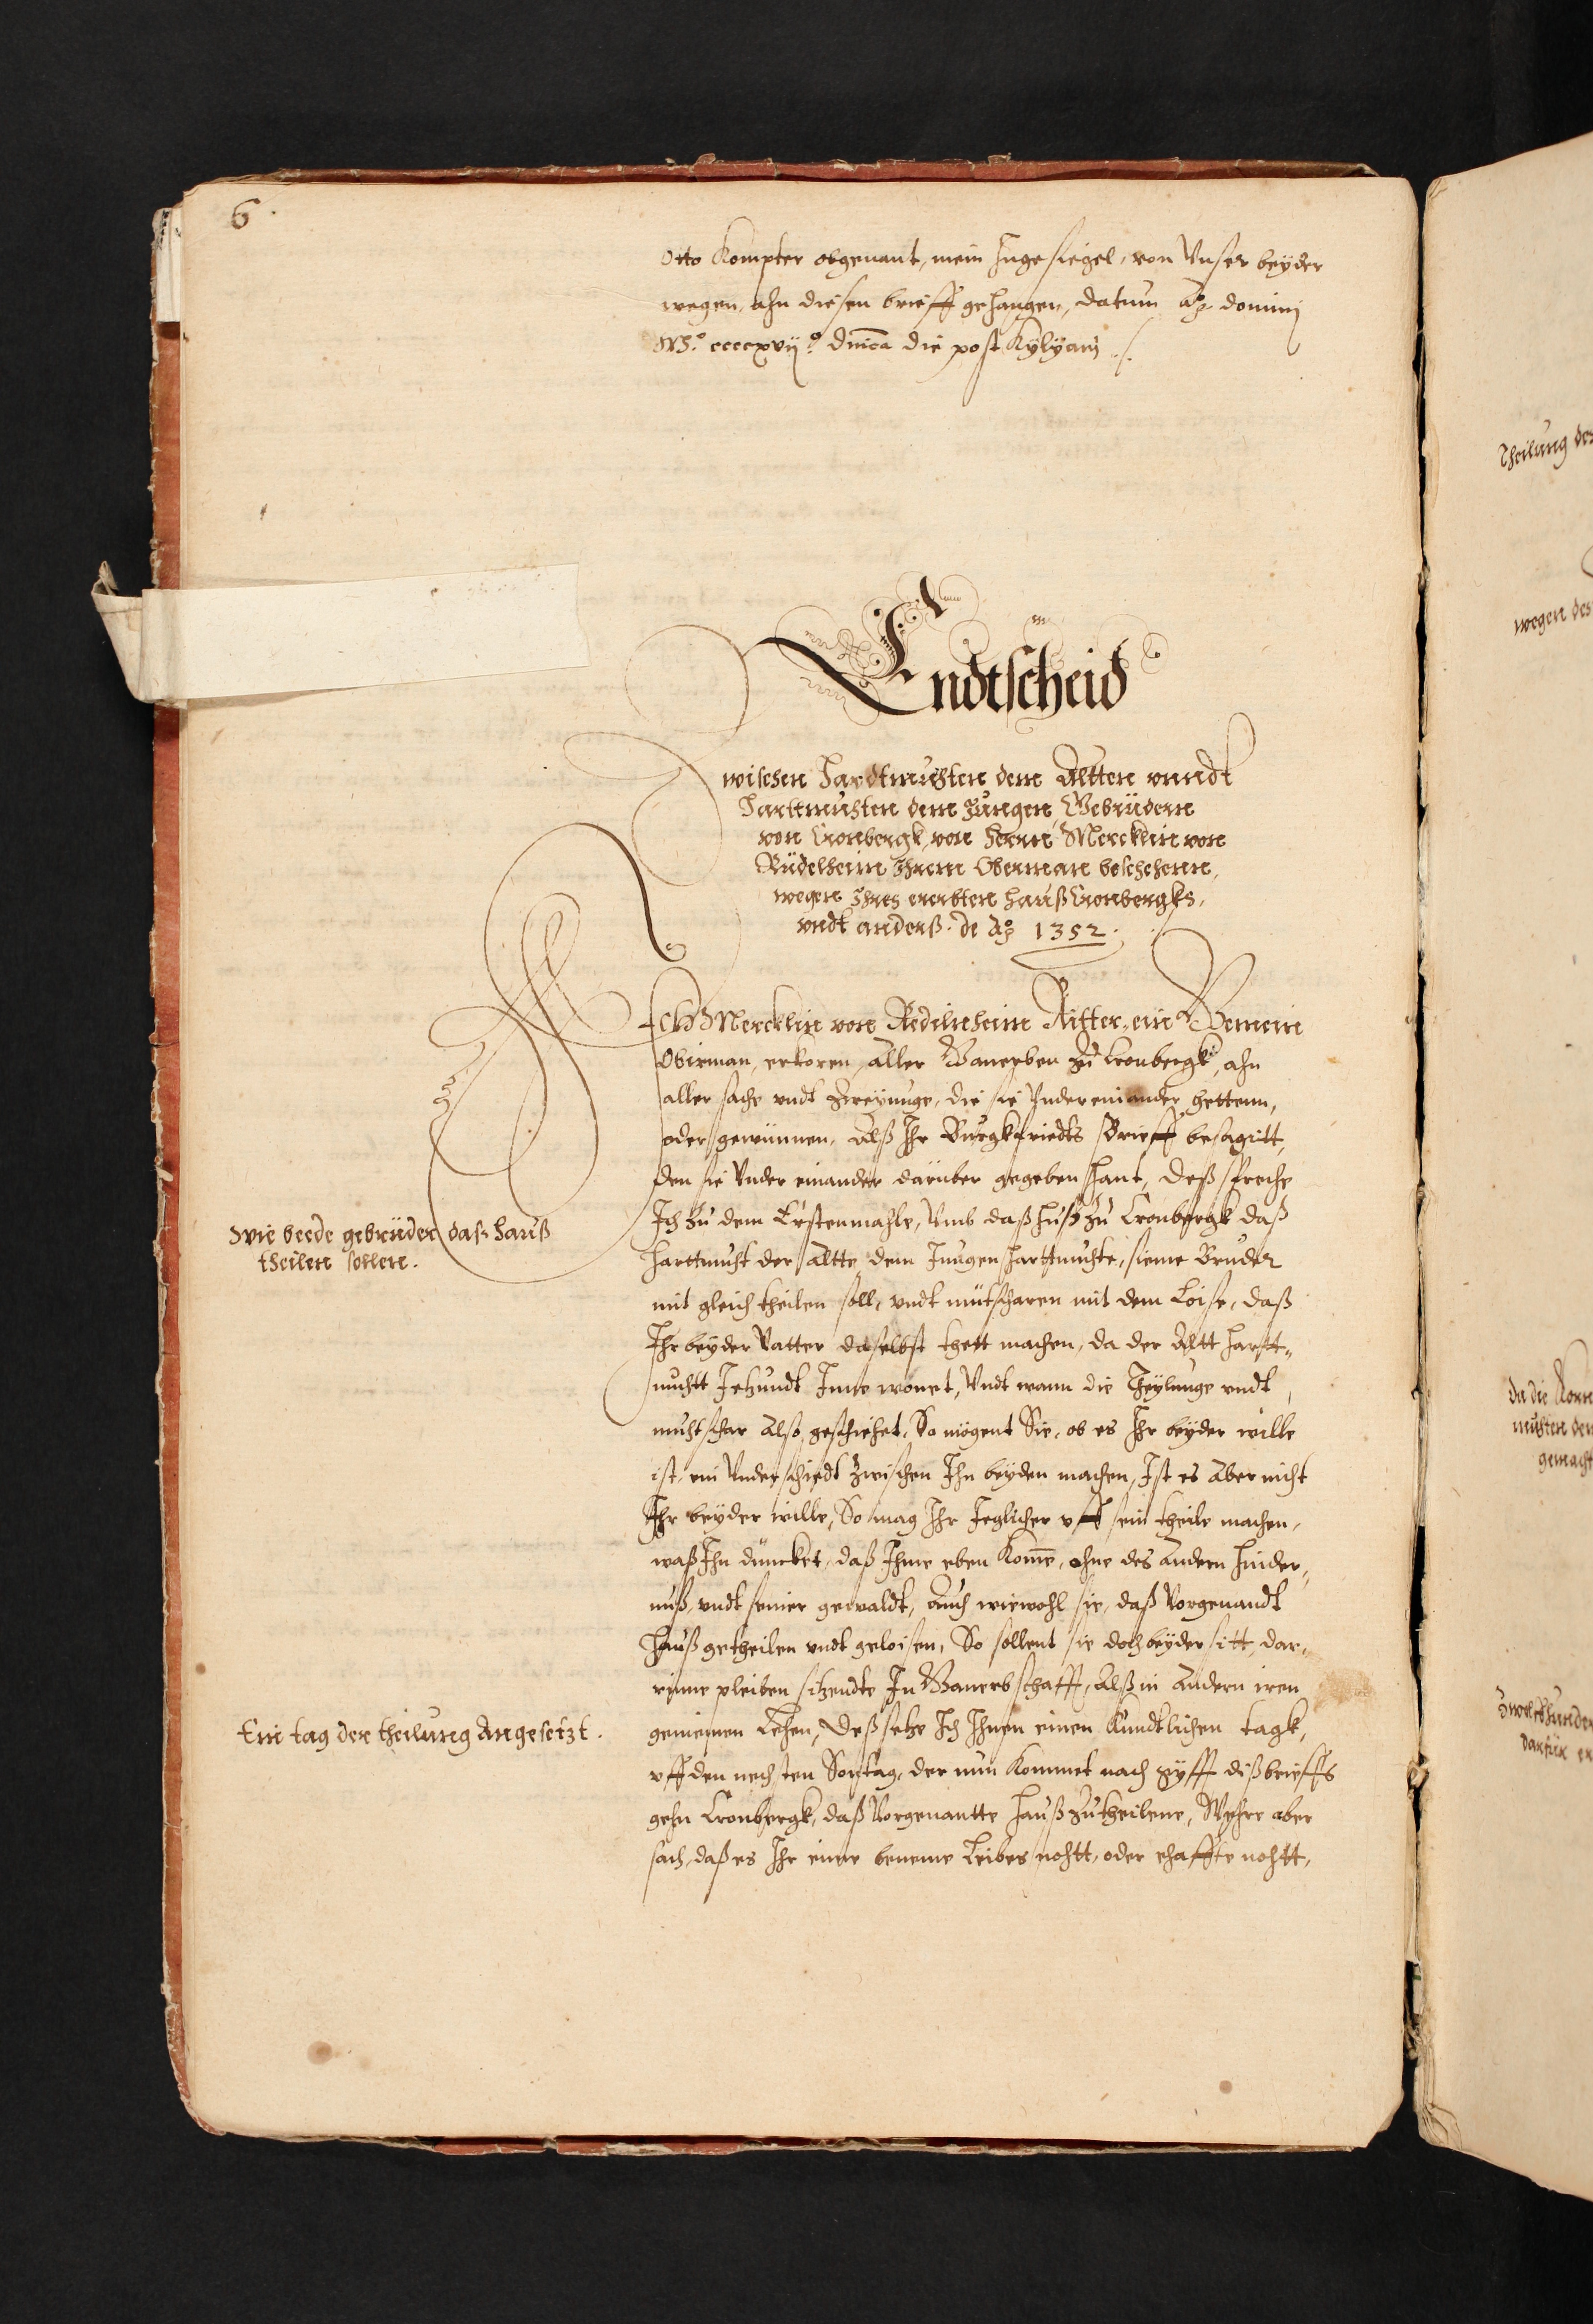 6.
Otto Kompter obgenant, mein Ingesiegel, von Unser beyder
wegen, ahn diesen brieff gehangen, datum Ao domini
M.o ccccxvij.o dnica die post Kylyani ./.
Endtscheid
Zwischen Hardtmuhten dem Altten unndt
Harttmuhten dem Jungen, Gebrüdern
von Cronbergk, von Herrn Mercklin von
Rüdelheim Ihrem Oberman beschehenn,
wegen Ihres ererbten Hauß Cronbergks,
undt anderß. de Ao 1352.
Ich Mercklin von Redilnheim Ritter, ein Gemein
Obirman, erkoren, aller Ganerben zu Cronbergk, ahn
aller sache undt zweyunge, die sie Undereinander hettenn,
oder gewünnen, Alß Ihr Burgkfriedts Brieff besagitt,
den sie Under einander darüber gegeben hant, deß spreche
Ich zu dem Erstenmahle, Umb daß Huß zu Cronbergk daß
Harttmuht der Altte, dem Jungen Harttmuhte, sieme Bruder
mit gleich theilen soll, undt mütscharen mit dem Loise, daß
Ihr beyder Vatter daselbst thett machen, da der Altt Hartt-
muhtt Jetzundt Inne wonet, Undt wann die Theylunge undt
muhtschar Also geschiehet, So mögent Sie, ob es Ihr beyder wille
ist, ein Underschiedt zwischen Ihn beyden machen, Ist es Aber nicht
Ihr beyder wille, So mag Ihr Jeglicher uff sein theile machen,
waß Ihn düncket, daß Ihme eben Kome, ohne des Andern hinder-
nuß, undt seiner gewaldt, Auch wiewohl sie, daß Vorgenandt
Hauß getheilen undt geloisen, So sollent sie doch beyder sitt, dar-
rinne pleiben sitzendte In Ganerbschafft, Alß in Andern iren
gemeinen Lehen, deß setze Ich Ihnen einen Kundtlichen tagk,
uff den nechsten Sontag, der nun Kommet nach gyfft diß brieffs
gehn Cronbergk, daß Vorgenantte Hauß zutheilene, Wehre aber
sach, daß es Ihr eime beneme Leibes nohtt, oder ehaffte nohtt,
Wie beede gebrüder das Hauß
theilen sollen.
Ein tag der theilung Angesetzt.
Theilung des
wegen des
gemacht